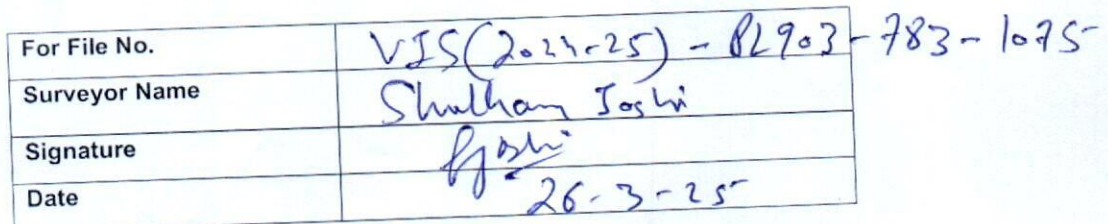 For File No. VIS(2024-25) - PL903-783-1075
Surveyor Name Shubham Joshi
Signature Joshi
Date 26-3-25